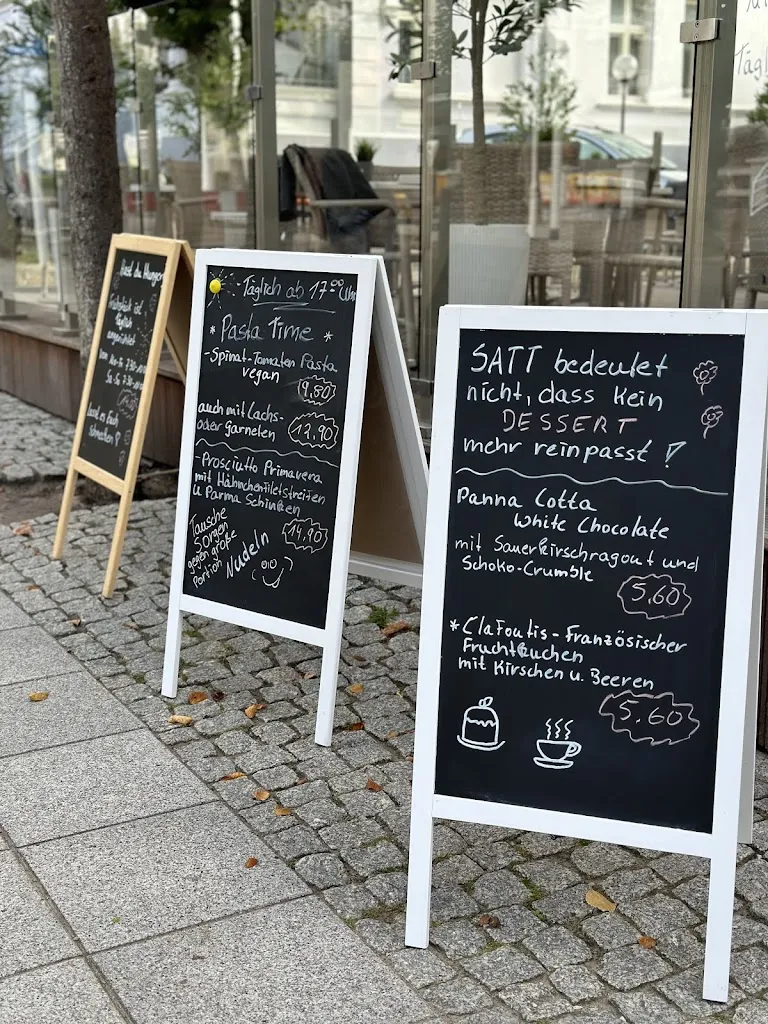 Hast du Hunger
Frühstück ist
täglich
angerichtet
Lasst es Euch
schmecken!
Täglich ab 17:00 Uhr
* Pasta Time *
- Spinat-Tomaten Pasta
vegan
9,80
auch mit Lachs-
oder garnelen
12,90
- Prosciutto Primavera
mit Hähnchenfiletstreifen
u. Parma Schinken
14,90
Tausche
Sorgen
gegen große
Portion
Nudeln
SATT bedeutet
nicht, dass kein
DESSERT
mehr reinpasst!
Panna Cotta
White Chocolate
mit Sauerkirschragout und
Schoko-Crumble
5,60
* Clafoutis - Französischer
Fruchtkuchen
mit Kirschen u. Beeren
5,60
Tägl